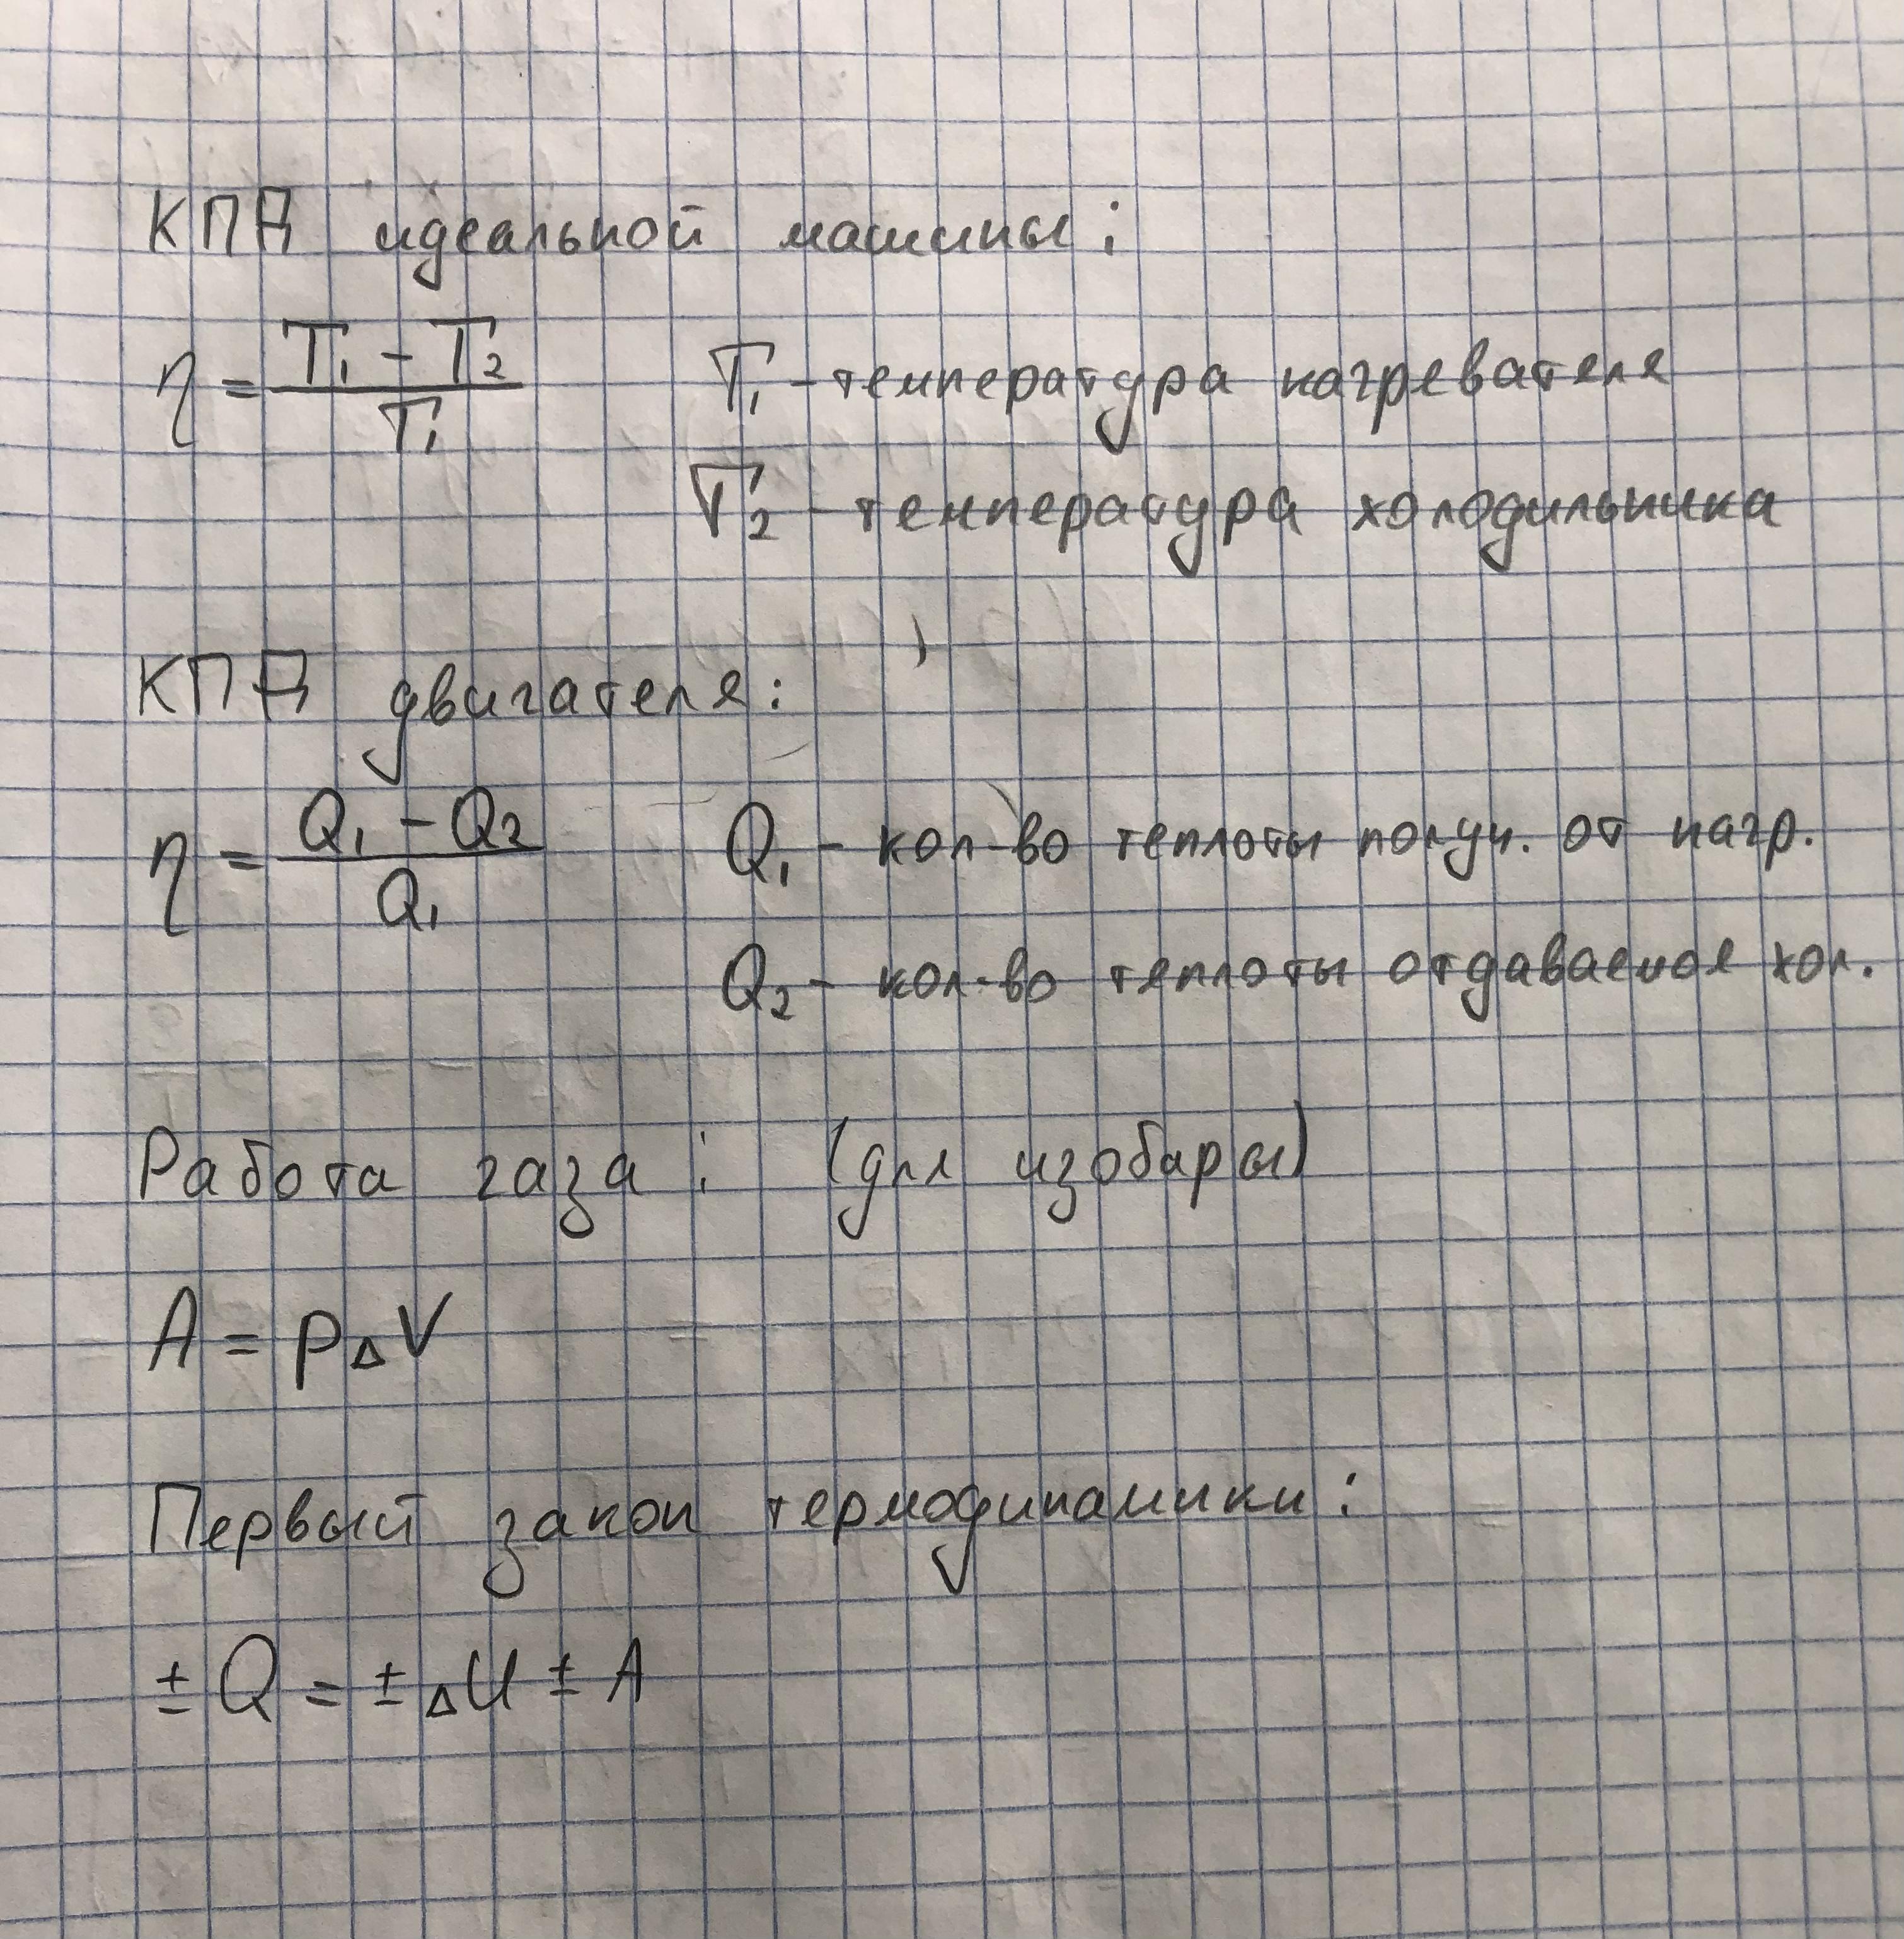 КПД идеальной машины:
η = (T₁ - T₂) / T₁ T₁ - температура нагревателя
T₂ - температура холодильника
КПД двигателя:
η = (Q₁ - Q₂) / Q₁ Q₁ - кол-во теплоты получ. от нагр.
Q₂ - кол-во теплоты отдаваемое хол.
Работа газа: (для изобары)
A = p△V
Первый закон термодинамики:
± Q = ± △U ± A